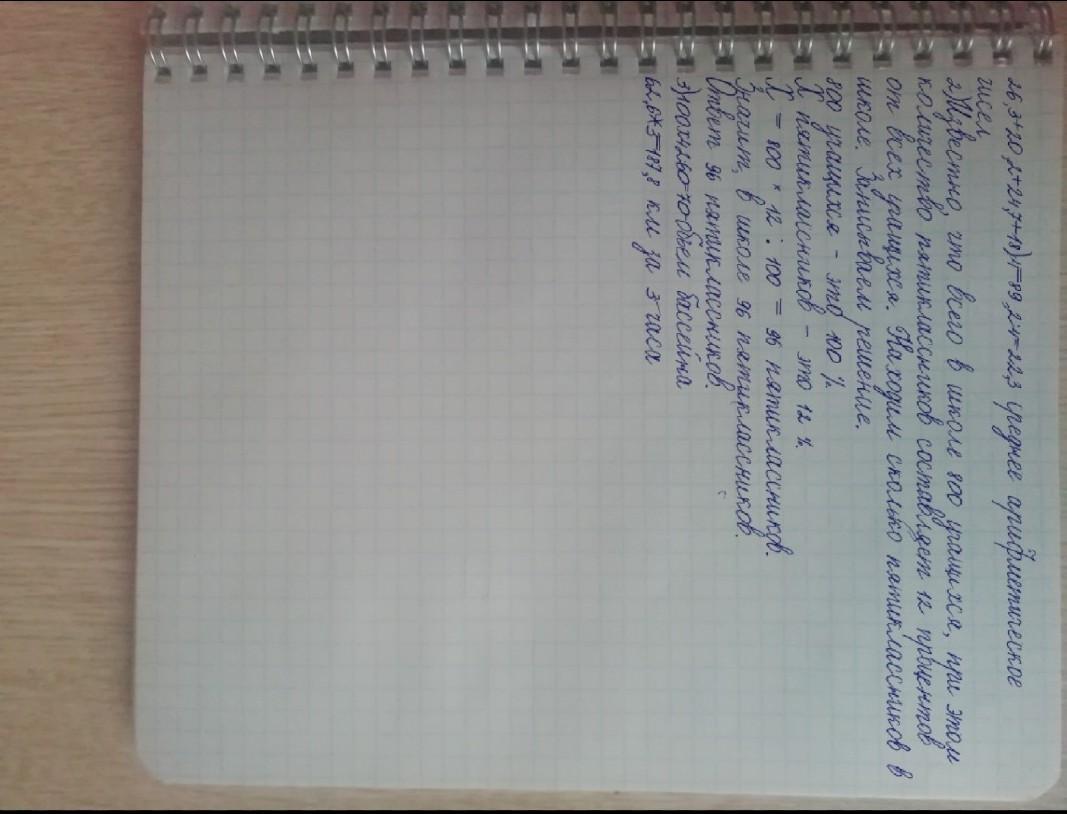 26,3+20,2+24,7+18):=89,24=22,3 среднее арифметическое
чисел
2)Известно, что всего в школе 800 учащихся, при этом
количество пятиклассников составляет 12 процентов
от всех учащихся. Находим сколько пятиклассников в
школе. Записываем решение.
800 учащихся - это 100 %
X пятиклассников - это 12 %.
X = 800 * 12 : 100 = 96 пятиклассников.
Значит, в школе 96 пятиклассников.
Ответ 96 пятиклассников.
объем бассейна
62,6*3=187,8 км за 3 часа